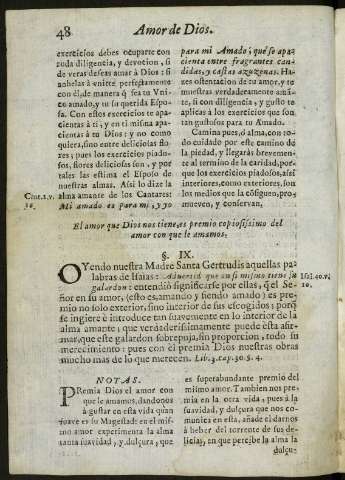 48
Amor de Dios.
exercicios debes ocuparte con
toda diligencia, y devocion, si
de veras deseas amar à Dios: si
anhelas à unirte perfectamente
con èl, de manera q̃ sea tu Uni-
co amado, y tu su querida Espo-
sa. Con estos exercicios te apa-
cientas à ti, y en ti misma apa-
cientas à tu Dios: y no como
quiera, sino entre deliciosas flo-
res; pues los exercicios piado-
sos, flores deliciosas son, y por
tales las estima el Esposo de
nuestras almas. Assi lo dize la
alma amante de los Cantares:
Mi amado es para mi, y yo
Cant. 2. v.
para mi Amado, que se apa-
cienta entre fragrantes can-
didas, y castas azuzenas. Ha-
zes ostentacion de tu amor, y te
muestras verdaderamente amã-
te, si con diligencia, y gusto te
aplicas à los exercicios que son
tan gustosos para tu Amado.
Camina pues, ò alma, con to-
do cuidado por este camino de
la piedad, y llegaràs brevemen-
te al termino de la caridad, por-
que los exercicios piadosos, assi
interiores, como exteriores, son
los medios que la cõsiguen, pro-
mueven, y conservan.
El amor que Dios nos tiene, es premio copiosissimo del
amor con que le amamos.
§. IX.
OYendo nuestra Madre Santa Gertrudis aquellas pa-
labras de Isaias: Advertid que en si mismo tiene su
galardon: entendiò significarse por ellas, q̃ el Se-
ñor en su amor, (esto es, amando y siendo amado) es pre-
mio no solo exterior, sino interior de sus escogidos; porq̃
se ingiere è introduce tan suavemente en lo interior de la
alma amante; que verdaderissimamente puede esta afir-
mar, que este galardon sobrepuja, sin proporcion, todo su
merecimiento: pues con èl premia Dios nuestras obras
mucho mas de lo que merecen. Lib. 3. cap. 30. §. 4.
Isai. 40. v.
10.
NOTAS.
PRemia Dios el amor con
que le amamos, dandonos
à gustar en esta vida quan
suave es su Magestad: en el mis-
mo amor experimenta la alma
tanta suavidad, y dulçura, que
es superabundante premio del
mismo amor. Tambien nos pre-
mia en la otra vida, pues à la
suavidad, y dulçura que nos co-
munica en esta, añade el darnos
à beber del torrente de sus de-
licias, en que percibe la alma la
dulçu-